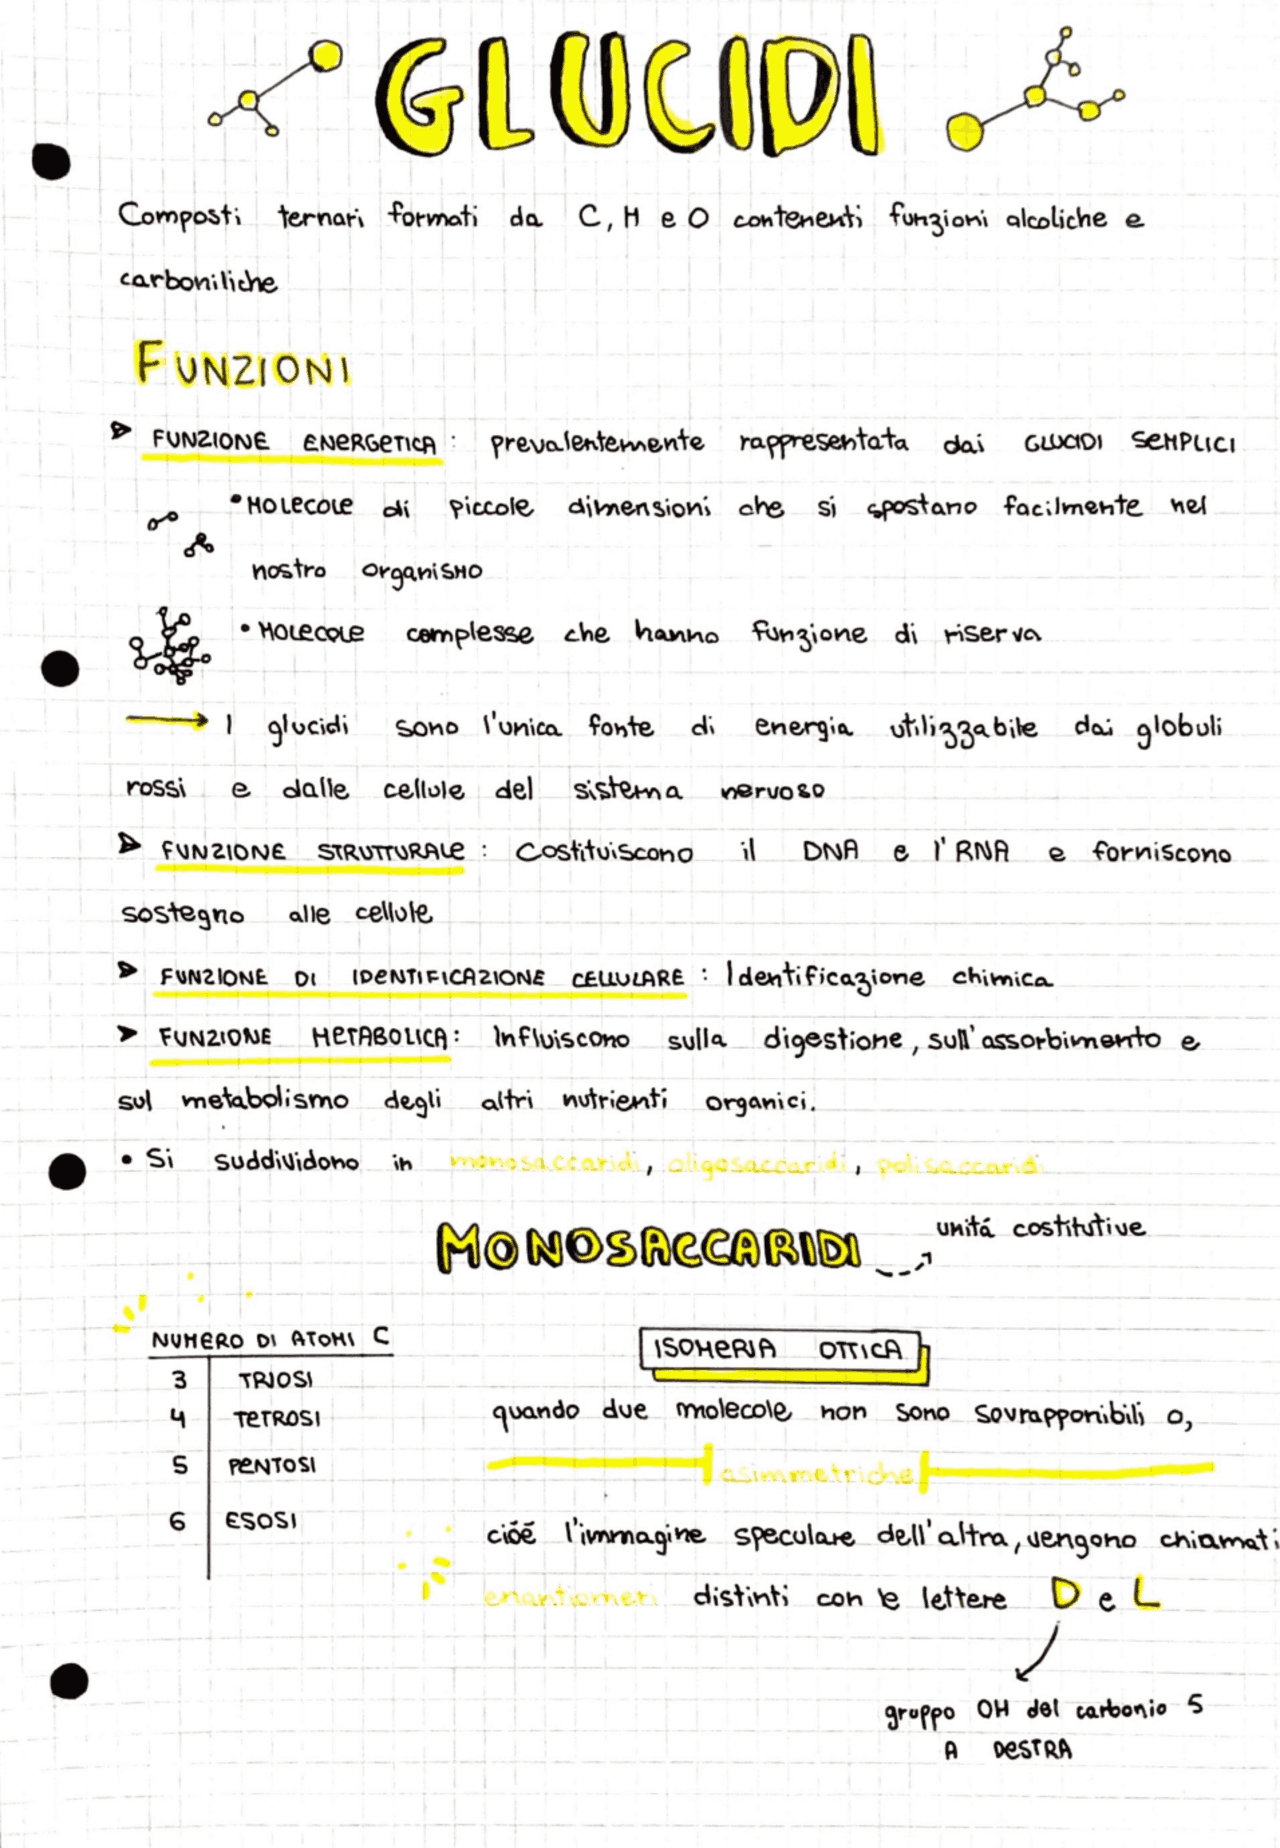 GLUCIDI
Composti ternari formati da C, H e O contenenti funzioni alcoliche e
carboniliche
FUNZIONI
FUNZIONE ENERGETICA: prevalentemente rappresentata dai GLUCIDI SEMPLICI
• MOLECOLE di piccole dimensioni che si spostano facilmente nel
nostro organismo
• MOLECOLE complesse che hanno funzione di riserva
→ I glucidi sono l'unica fonte di energia utilizzabile dai globuli
rossi e dalle cellule del sistema nervoso
FUNZIONE STRUTTURALE: Costituiscono il DNA e l'RNA e forniscono
sostegno alle cellule
FUNZIONE DI IDENTIFICAZIONE CELLULARE: Identificazione chimica
FUNZIONE METABOLICA: Influiscono sulla digestione, sull'assorbimento e
sul metabolismo degli altri nutrienti organici.
• Si suddividono in monosaccaridi, oligosaccaridi, polisaccaridi
MONOSACCARIDI
unitá costitutive
NUMERO DI ATOMI C
3 TRIOSI
4 TETROSI
5 PENTOSI
6 ESOSI
ISOMERIA OTTICA
quando due molecole non sono sovrapponibili o,
asimmetriche
cióé l'immagine speculare dell'altra, vengono chiamati
enantiomeri distinti con le lettere D e L
gruppo OH del carbonio 5
A DESTRA